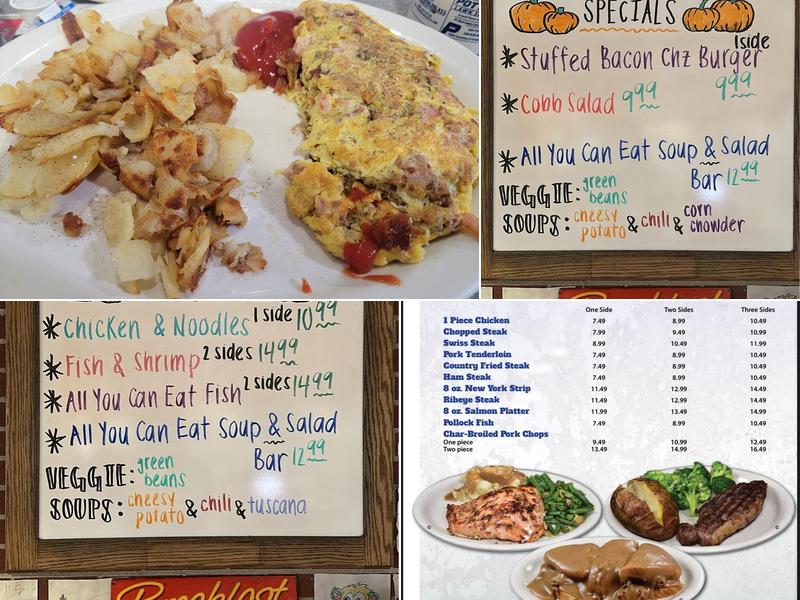 SPECIALS
*Stuffed Bacon Chz Burger 1side 999
*Cobb Salad 999
*All You Can Eat Soup & Salad
Bar 1299
VEGGIE: green beans
SOUPS: cheesy potato & chili & corn chowder
*Chicken & Noodles 1 side 1099
*Fish & Shrimp 2 sides 1499
*All You Can Eat Fish 2 sides 1499
*All You Can Eat Soup & Salad
Bar 1299
VEGGIE: green beans
SOUPS: cheesy potato & chili & tuscana
Breakfast
One Side Two Sides Three Sides
1 Piece Chicken 7.49 8.99 10.49
Chopped Steak 7.99 9.49 10.99
Swiss Steak 8.99 10.49 11.99
Pork Tenderloin 7.49 8.99 10.49
Country Fried Steak 7.49 8.99 10.49
Ham Steak 7.49 8.99 10.49
8 oz. New York Strip 11.49 12.99 14.49
Ribeye Steak 11.49 12.99 14.49
8 oz. Salmon Platter 11.99 13.49 14.99
Pollock Fish 7.49 8.99 10.49
Char-Broiled Pork Chops
One piece 9.49 10.99 12.49
Two piece 13.49 14.99 16.49